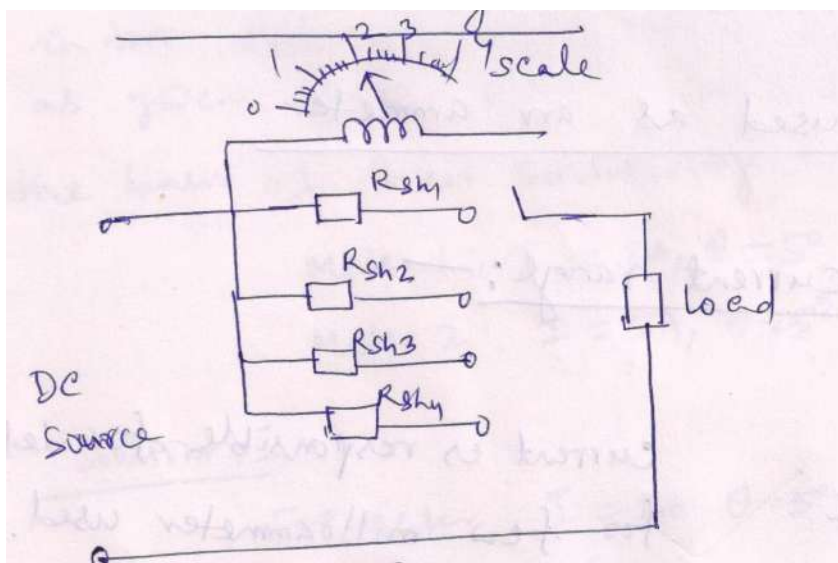 0 1 2 3 4
scale
Rsh1
Rsh2
Rsh3
Rsh4
load
DC
Source